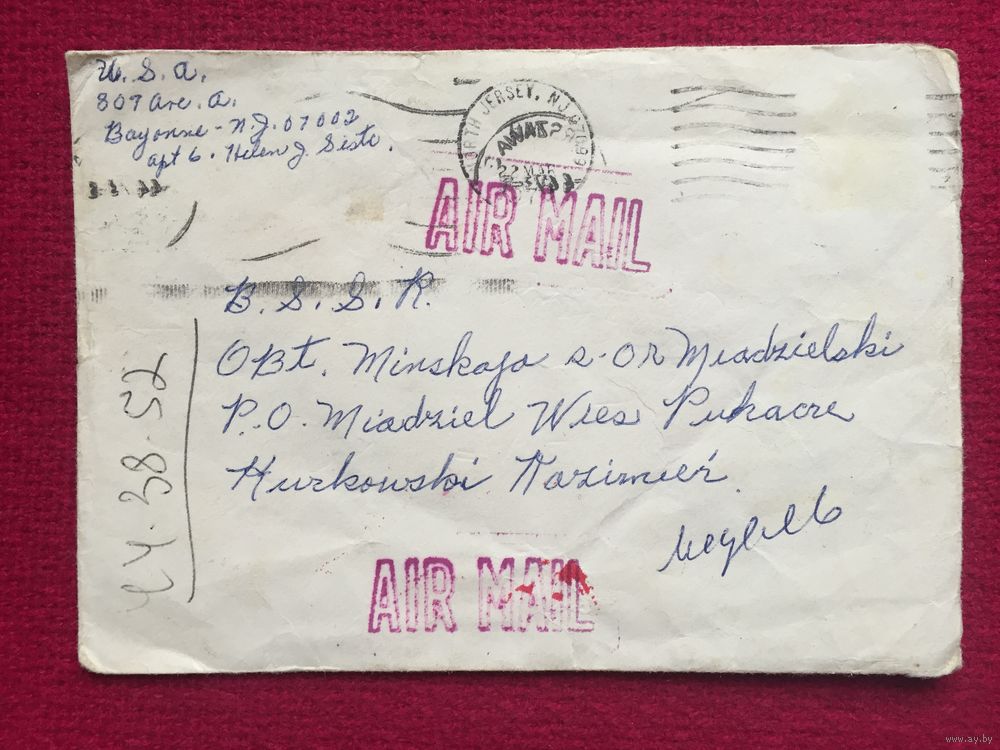 U. S. A.
809 Ave. A.
Bayonne - N.J. 07002
apt 6. Helen J. Sisto.
NORTH JERSEY, NJ
AIR MAIL
B. S. S. R.
OBt. Minskaja R-OR Miadzielski
P.O. Miadziel Wies Pukacze
Hurkowski Kazimierź
44-38-52
AIR MAIL
www.ay.by